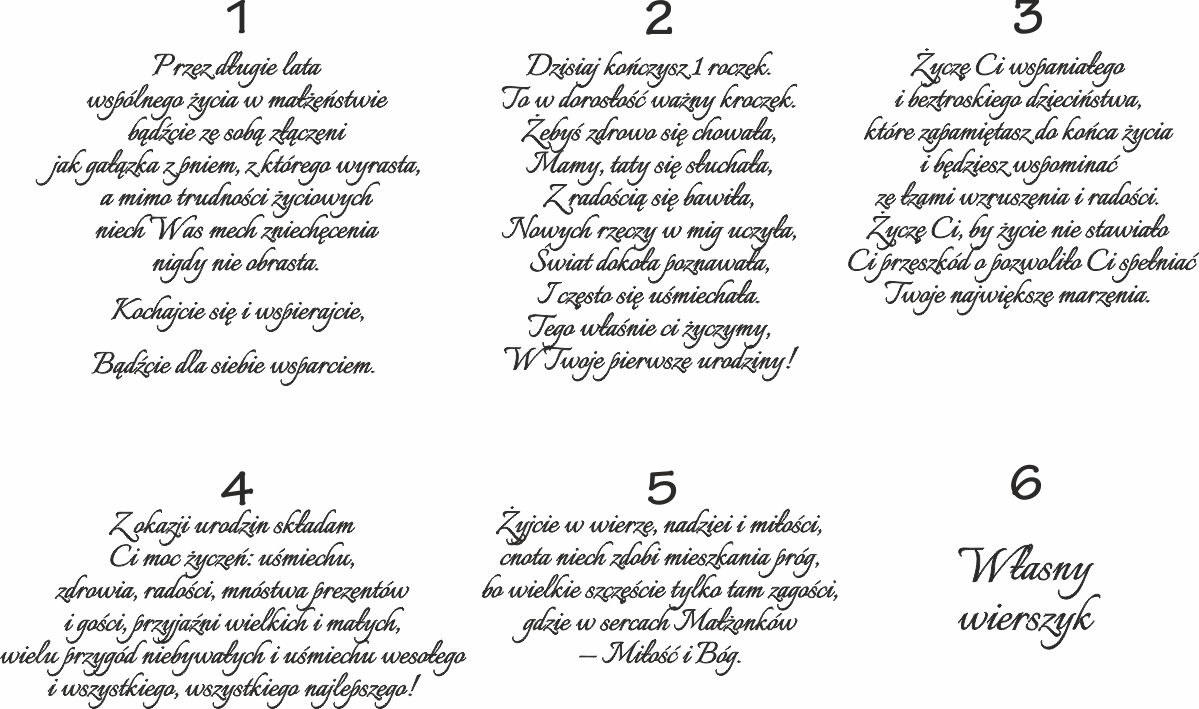 1
Przez długie lata
wspólnego życia w małżeństwie
bądźcie ze sobą złączeni
jak gałązka z pniem, z którego wyrasta,
a mimo trudności życiowych
niech Was mech zniechęcenia
nigdy nie obrasta.
Kochajcie się i wspierajcie,
Bądźcie dla siebie wsparciem.
2
Dzisiaj kończysz 1 roczek.
To w dorosłość ważny kroczek.
Żebyś zdrowo się chowała,
Mamy, taty się słuchała,
Z radością się bawiła,
Nowych rzeczy w mig uczyła,
Świat dokoła poznawała,
I często się uśmiechała.
Tego właśnie ci życzymy,
W Twoje pierwsze urodziny!
3
Życzę Ci wspaniałego
i beztroskiego dzieciństwa,
które zapamiętasz do końca życia
i będziesz wspominać
ze łzami wzruszenia i radości.
Życzę Ci, by życie nie stawiało
Ci przeszkód o pozwoliło Ci spełniać
Twoje największe marzenia.
4
Z okazji urodzin składam
Ci moc życzeń: uśmiechu,
zdrowia, radości, mnóstwa prezentów
i gości, przyjaźni wielkich i małych,
wielu przygód niebywałych i uśmiechu wesołego
i wszystkiego, wszystkiego najlepszego!
5
Żyjcie w wierze, nadziei i miłości,
cnota niech zdobi mieszkania próg,
bo wielkie szczęście tylko tam zagości,
gdzie w sercach Małżonków
– Miłość i Bóg.
6
Własny
wierszyk